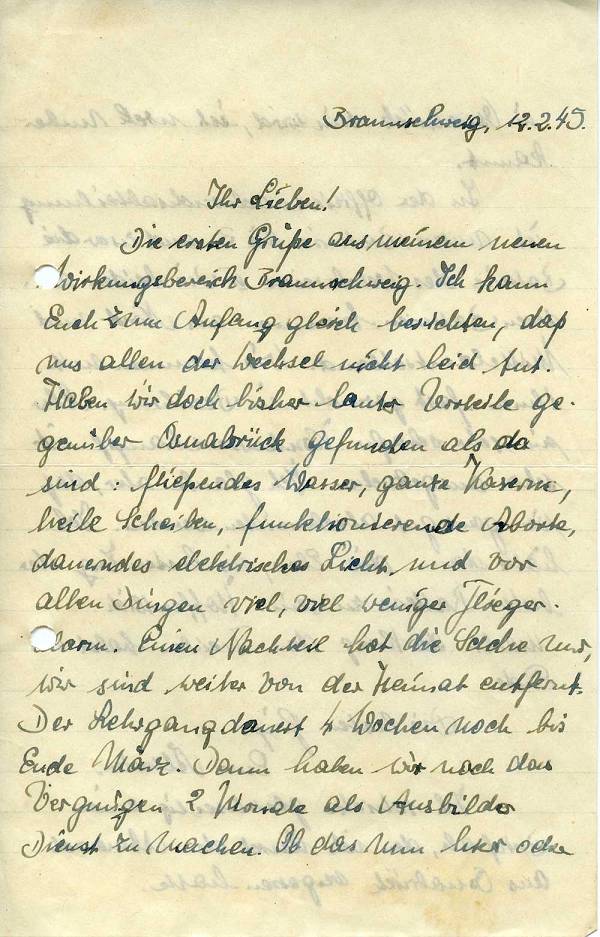 Braunschweig, 12.2.45.
Ihr Lieben!
Die ersten Grüße aus meinem neuen
Wirkungsbereich Braunschweig. Ich kann
Euch zum Anfang gleich berichten, daß
uns allen der Wechsel nicht leid tut.
Haben wir doch bisher lauter Vorteile ge-
genüber Osnabrück gefunden als da
sind: fließendes Wasser, ganze Kaserne,
heile Scheiben, funktionierende Aborte,
dauerndes elektrisches Licht und vor
allen Dingen viel, viel weniger Flieger-
alarm. Einen Nachteil hat die Sache nur,
wir sind weiter von der Heimat entfernt.
Der Lehrgang dauert 4 Wochen noch bis
Ende März. Dann haben wir noch das
Vergnügen 2 Monate als Ausbilder
Dienst zu machen. Ob das nun hier oder